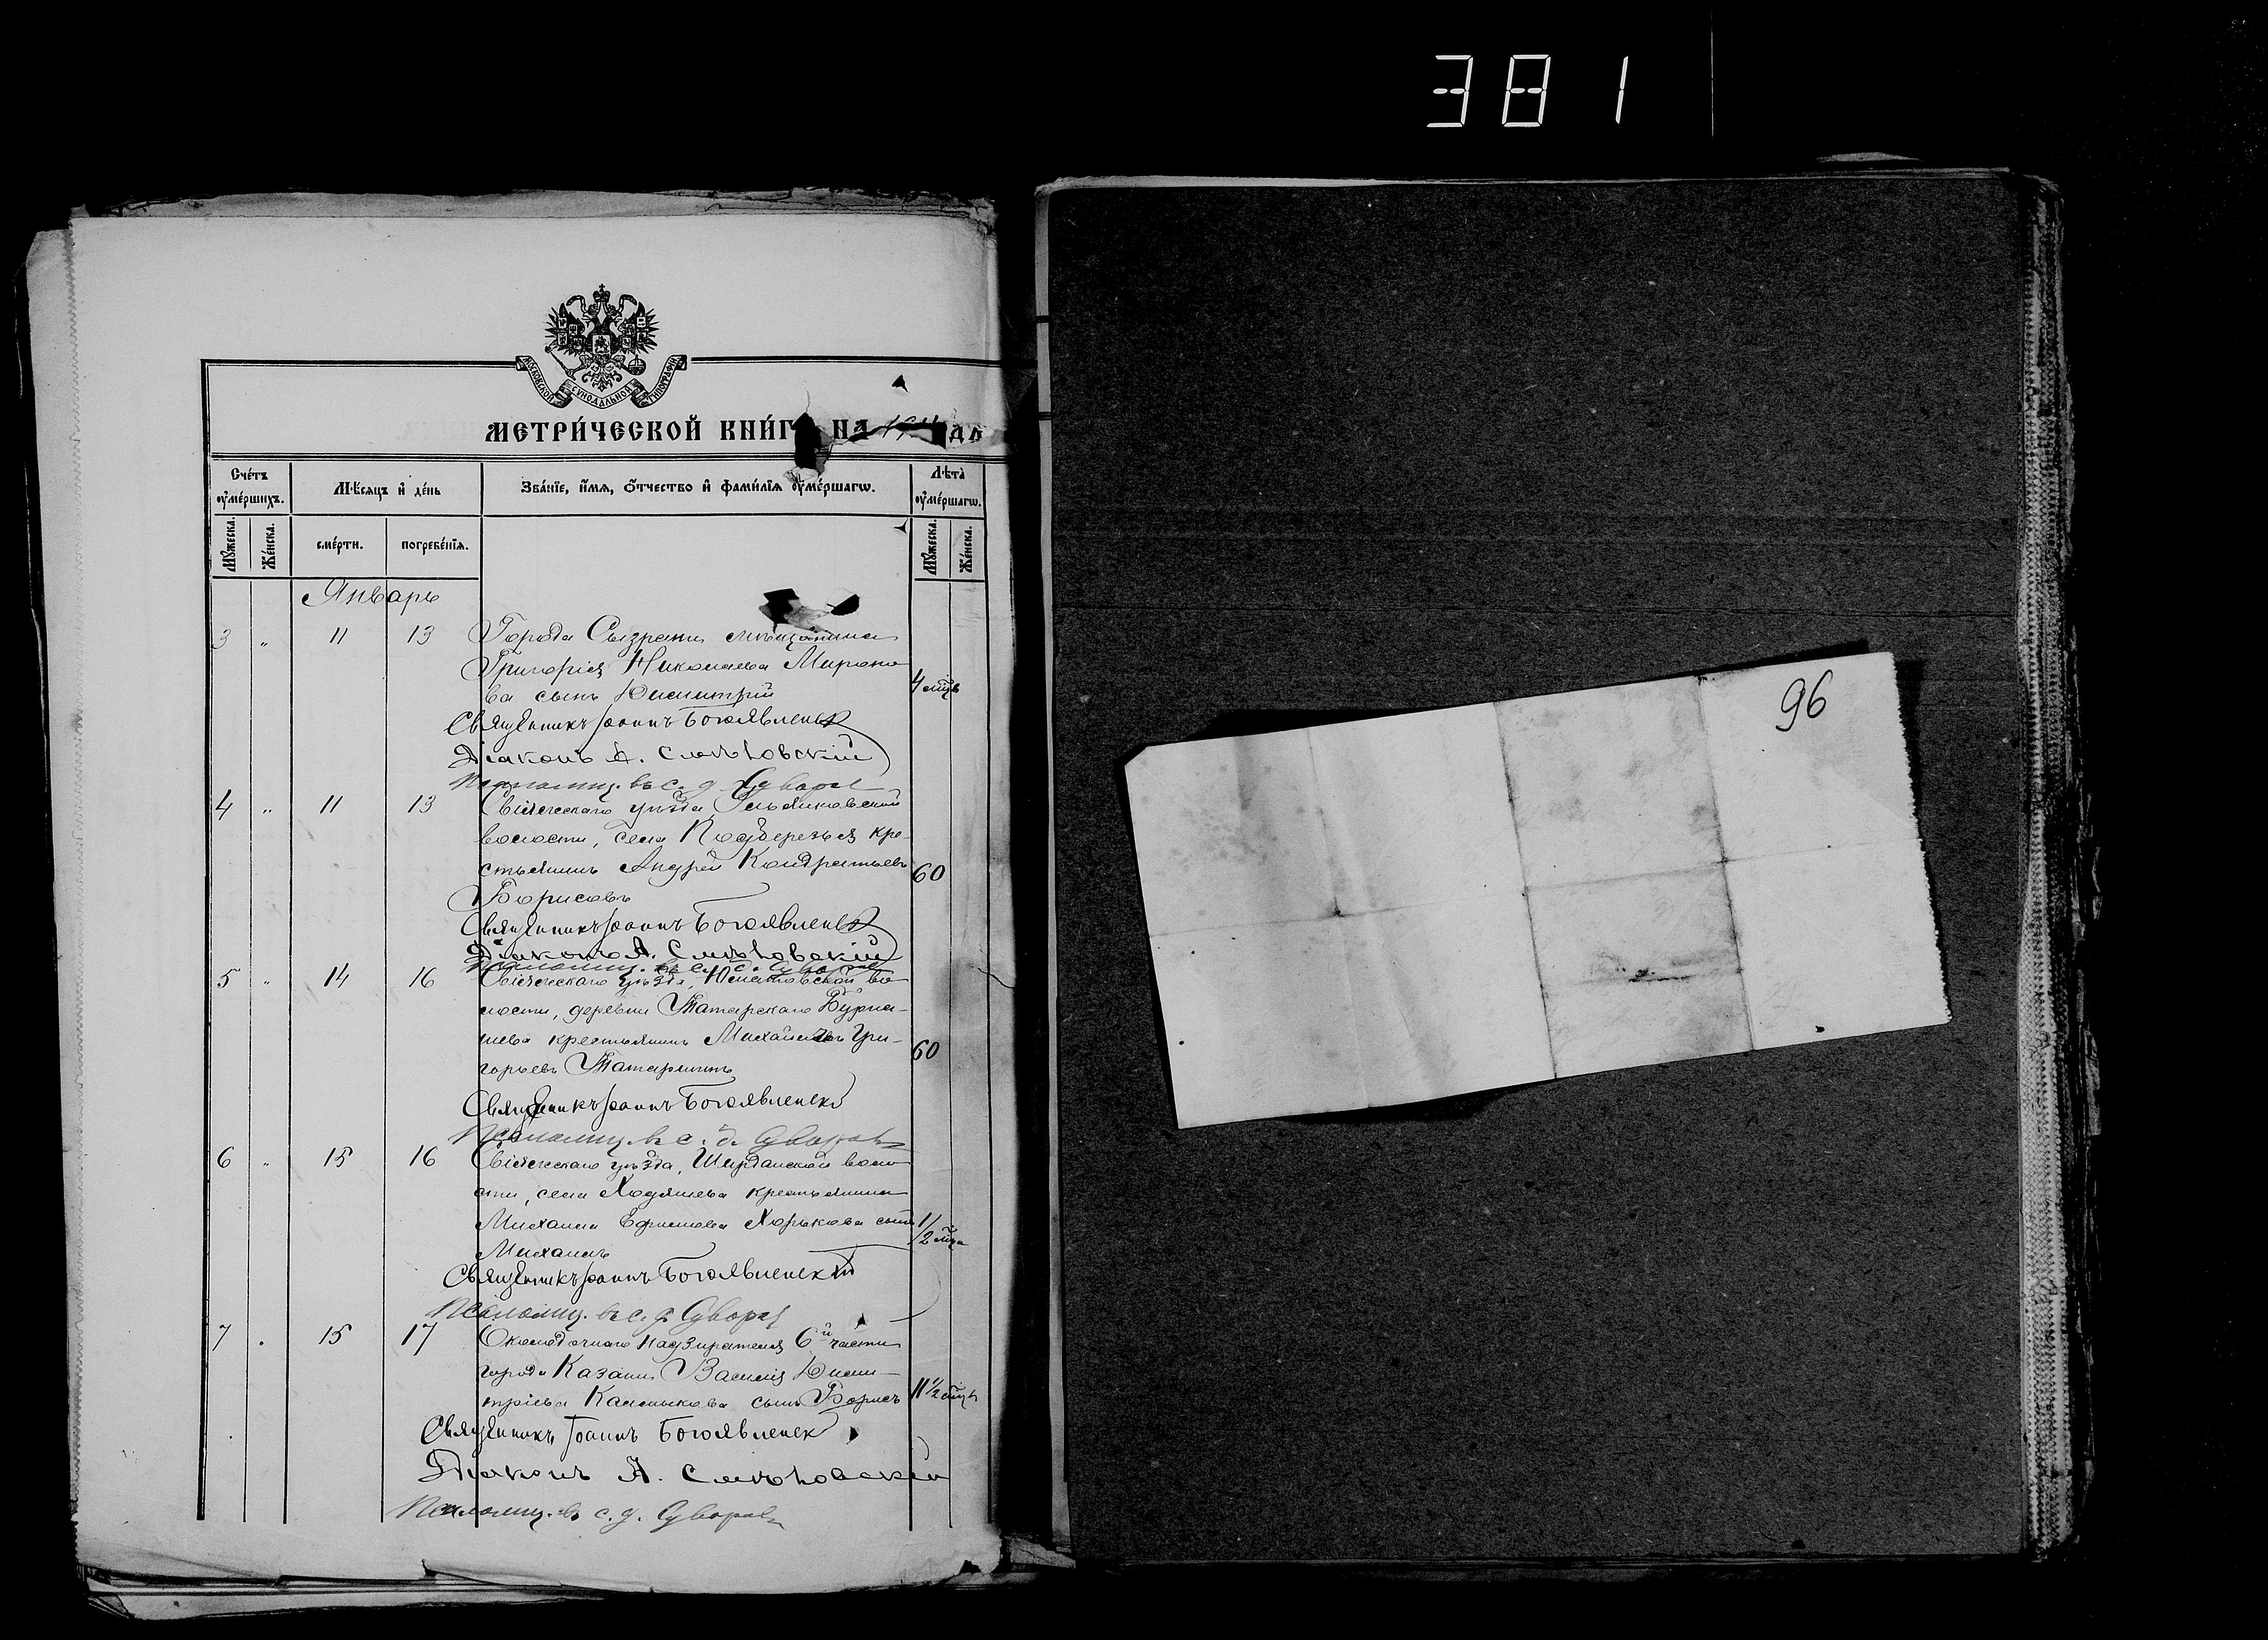 381
МОСКОВСКОЙ СѴНОДАЛЬНОЙ ТИПОГРАФІИ
МЕТРИ́ЧЕСКОЙ КНИ́Г НА 191 ДЪ
Сче́тъ ᲂу҆ме́ршихъ.
Мѣ́сяцъ и҆ де́нь
Зва́нїе, и҆́мѧ, ѻ҆́тчество и҆ фами́лїѧ ᲂу҆ме́ршагѡ.
Лѣ́та ᲂу҆ме́ршагѡ.
Мꙋ́жеска.
Же́нска.
сме́рти.
погребе́нїѧ.
Мꙋ́жеска.
Же́нска.
Январь
3 " 11 13 Города Сызрани мѣщанина
Григорія Николаева Мироно
ва сынъ Димитрій 4 мцъ
Священникъ Іоаннъ Богоявленск
Діаконъ А. Смѣловскій
Псаломщ. въ с. д. Суворов
4 " 11 13 Свіяжскаго уѣзда, Ульянковской
волости, села Подберезья кре-
стьянинъ Андрей Кондратьевъ 60
Борисовъ
Священникъ Іоаннъ Богоявленск
Діаконъ А. Смѣловскій
Псаломщ. въ с. д. Суворов
5 " 14 16 Свіяжскаго уѣзда, во
лости, деревни Татарскаго Бурна-
шева крестьянинъ Михаилъ Гри- 60
горьевъ Татаринъ
Священникъ Іоаннъ Богоявленск
Псаломщ. въ с. д. Суворов
6 " 15 16 Свіяжскаго уѣзда, Ширданской воло
сти, села Ходяшева крестьянина
Михаила Ефимова Хорькова сынъ 1/2 мца
Михаилъ
Священникъ Іоаннъ Богоявленскій
Псаломщ. въ с. д. Суворов
7 . 15 17 Околодочнаго надзирателя 6й части
города Казани Василія Дими-
тріева Калмыкова сынъ Борисъ 11 1/2 мцъ
Священникъ Іоаннъ Богоявленск
Діаконъ А. Смѣловскій
Псаломщ. въ с. д. Суворовъ
96